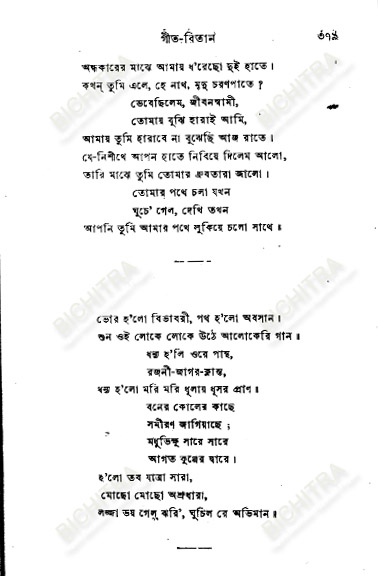 গীত-বিতান ৩৭৯
অন্ধকারের মাঝে আমায় ধ'রেছো দুই হাতে।
কখন্ তুমি এলে, হে নাথ, মৃদু চরণপাতে?
ভেবেছিলেম, জীবনস্বামী,
তোমায় বুঝি হারাই আমি,
আমায় তুমি হারাবে না বুঝেছি আজ রাতে।
যে-নিশীথে আপন হাতে নিবিয়ে দিলেম আলো,
তারি মাঝে তুমি তোমার ধ্রুবতারা জ্বালো।
তোমার পথে চলা যখন
ঘুচে' গেল, দেখি তখন
আপনি তুমি আমার পথে লুকিয়ে চলো সাথে॥
ভোর হ'লো বিভাবরী, পথ হ'লো অবসান।
শুন ওই লোকে লোকে উঠে আলোকেরি গান॥
ধন্য হ'লি ওরে পান্থ,
রজনী-জাগর-ক্লান্ত,
ধন্য হ'লো মরি মরি ধূলায় ধূসর প্রাণ॥
বনের কোলের কাছে
সমীরণ জাগিয়াছে;
মধুভিক্ষু সারে সারে
আগত কুঞ্জের দ্বারে।
হ'লো তব যাত্রা সারা,
মোছো মোছো অশ্রুধারা,
লজ্জা ভয় গেল ঝরি', ঘুচিল রে অভিমান॥
BICHITRA
BICHITRA
BICHITRA
BICHITRA
BICHITRA
BICHITRA